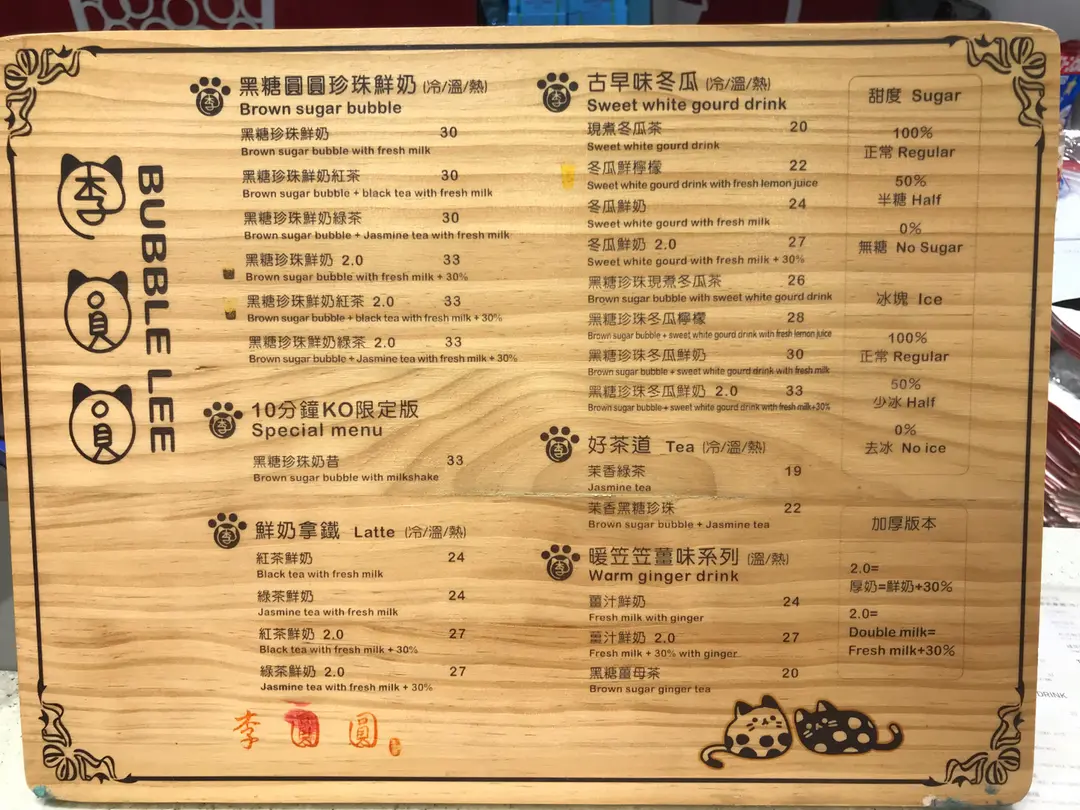 李圓圓
BUBBLE LEE
黑糖圓圓珍珠鮮奶 (冷/溫/熱)
Brown sugar bubble
黑糖珍珠鮮奶 30
Brown sugar bubble with fresh milk
黑糖珍珠鮮奶紅茶 30
Brown sugar bubble + black tea with fresh milk
黑糖珍珠鮮奶綠茶 30
Brown sugar bubble + Jasmine tea with fresh milk
黑糖珍珠鮮奶 2.0 33
Brown sugar bubble with fresh milk + 30%
黑糖珍珠鮮奶紅茶 2.0 33
Brown sugar bubble + black tea with fresh milk + 30%
黑糖珍珠鮮奶綠茶 2.0 33
Brown sugar bubble + Jasmine tea with fresh milk + 30%
10分鐘KO限定版
Special menu
黑糖珍珠奶昔 33
Brown sugar bubble with milkshake
鮮奶拿鐵 Latte (冷/溫/熱)
紅茶鮮奶 24
Black tea with fresh milk
綠茶鮮奶 24
Jasmine tea with fresh milk
紅茶鮮奶 2.0 27
Black tea with fresh milk + 30%
綠茶鮮奶 2.0 27
Jasmine tea with fresh milk + 30%
李圓圓
古早味冬瓜 (冷/溫/熱)
Sweet white gourd drink
現煮冬瓜茶 20
Sweet white gourd drink
冬瓜鮮檸檬 22
Sweet white gourd drink with fresh lemon juice
冬瓜鮮奶 24
Sweet white gourd with fresh milk
冬瓜鮮奶 2.0 27
Sweet white gourd with fresh milk + 30%
黑糖珍珠現煮冬瓜茶 26
Brown sugar bubble with sweet white gourd drink
黑糖珍珠冬瓜檸檬 28
Brown sugar bubble + sweet white gourd drink with fresh lemon juice
黑糖珍珠冬瓜鮮奶 30
Brown sugar bubble + sweet white gourd drink with fresh milk
黑糖珍珠冬瓜鮮奶 2.0 33
Brown sugar bubble + sweet white gourd drink with fresh milk+30%
好茶道 Tea (冷/溫/熱)
茉香綠茶 19
Jasmine tea
茉香黑糖珍珠 22
Brown sugar bubble + Jasmine tea
暖笠笠薑味系列 (溫/熱)
Warm ginger drink
薑汁鮮奶 24
Fresh milk with ginger
薑汁鮮奶 2.0 27
Fresh milk + 30% with ginger
黑糖薑母茶 20
Brown sugar ginger tea
甜度 Sugar
100%
正常 Regular
50%
半糖 Half
0%
無糖 No Sugar
冰塊 Ice
100%
正常 Regular
50%
少冰 Half
0%
去冰 No ice
加厚版本
2.0=
厚奶=鮮奶+30%
2.0=
Double milk=
Fresh milk+30%
DRINK